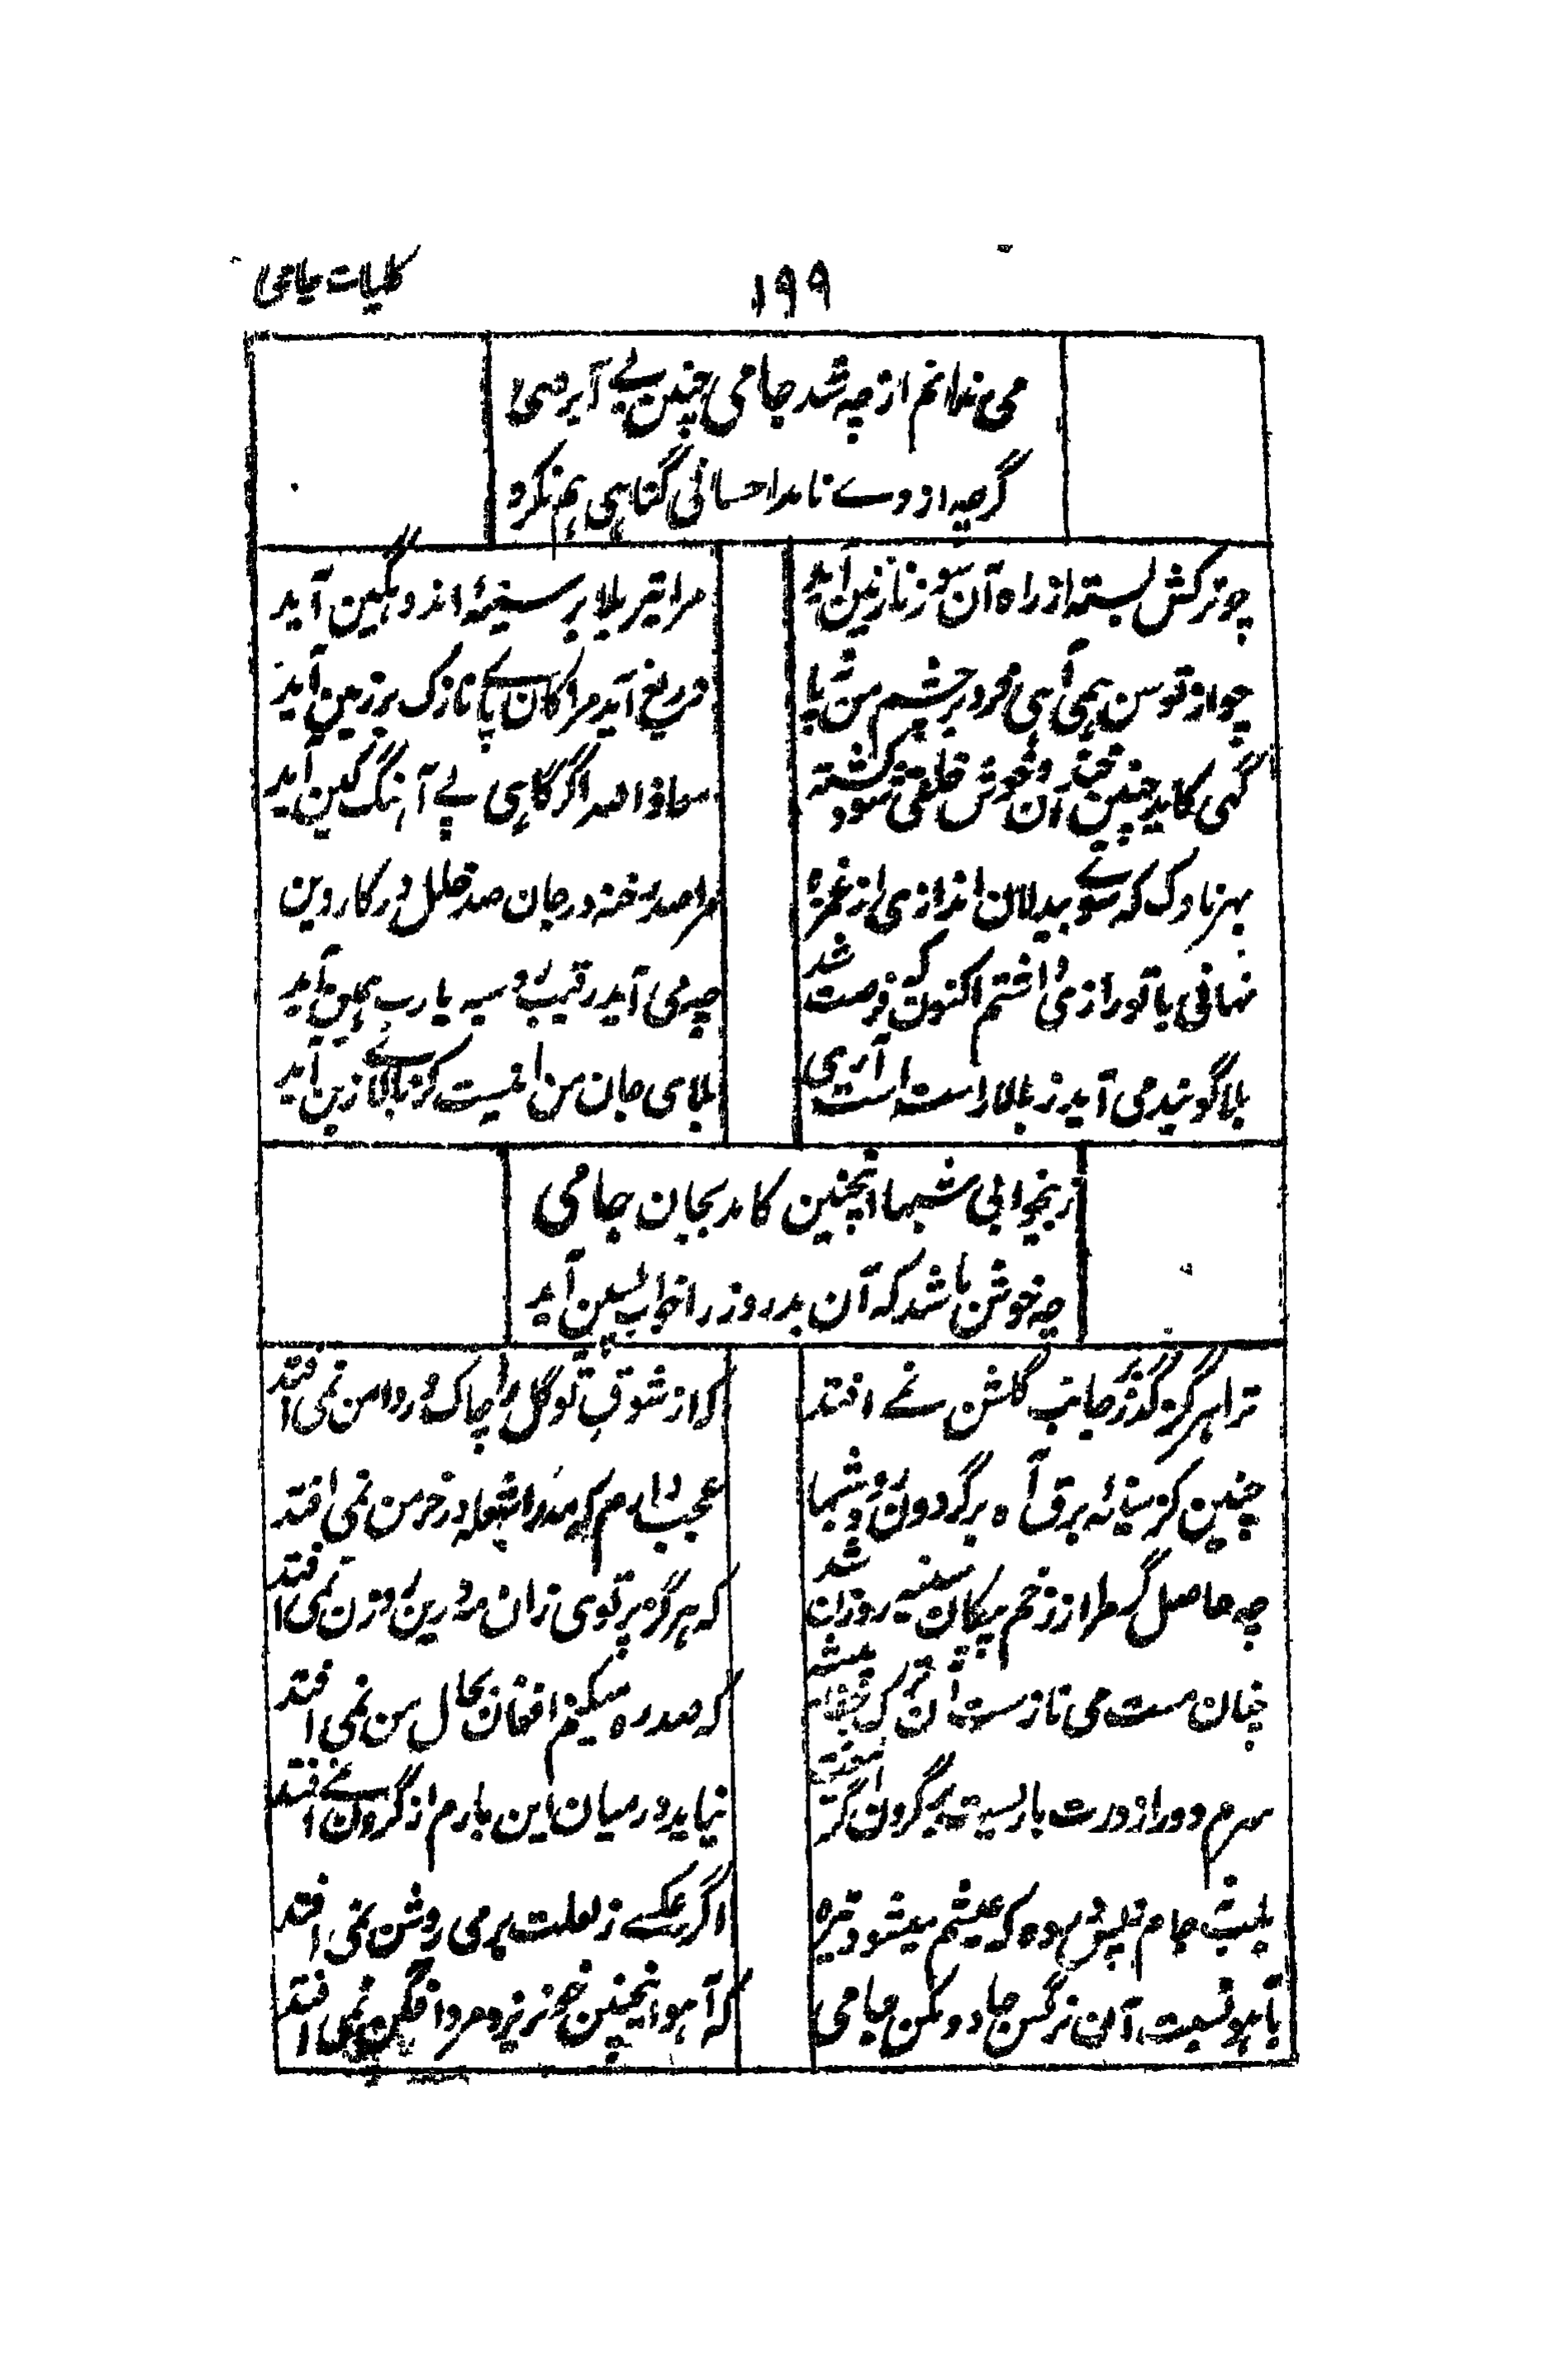 کلیات جامی
۱۹۹
می ندانم از چه شد جامی چنین بے آبروی
گرچه از وے نامد احسانی گناهی هم نکرد
چو ترکش بسته از راه آن سوار نازنین آید
مرا تیر بلا بر سینهٔ اندوهگین آید
چو از توسن همی آی فرود بر چشم من نه پا
دریغ آید مرا کان پاے نازک بر زمین آید
گهی کاید چنین خندان و خوش خلقی شود کشته
معاذ الله اگر گاهی پے آهنگ کین آید
بهر ناوک که سوے بیدلان اندازی از غمزه
مرا صد رخنه در جان صد خلل در کار دین
نهانی با تو رازی داشتم اکنون که فرصت شد
چه می آید رقیب رو سیه یا رب همین آید
بلا گویند می آید ز بالا راست است آریی
بلای جان من اینست کز بالاے زین آید
ز بیخوابی شبها اینچنین کامد بجان جامی
چه خوش باشد که آن بد روز را خواب پسین آید
ترا هرگز گذر جانب گلشن نمے افتد
که از شوق تو گل را چاک در دامن نمی افتد
چنین کز سینه برق آه بر گردون رود شبها
عجب دارم که مه را شعله در خرمن نمی افتد
چه حاصل گر مرا از زخم پیکان سینه روزن شد
که هرگز پرتوی زان مه درین روزن نمی افتد
چنان مست می نازست آن ترک
که صد ره میکنم افغان بحال من نمی افتد
سرم دور از درت باریست بر گردن اگر
نیاید در میان این بارم از گردن نمے افتد
بلبت جام م که عیشم میشود تیره
اگر عکسے ز لعلت بر می روشن نمی افتد
بآهو نسبت آن نرگس جادو مکن جامی
که آهو اینچنین خونریز و مرد افگن نمی افتد